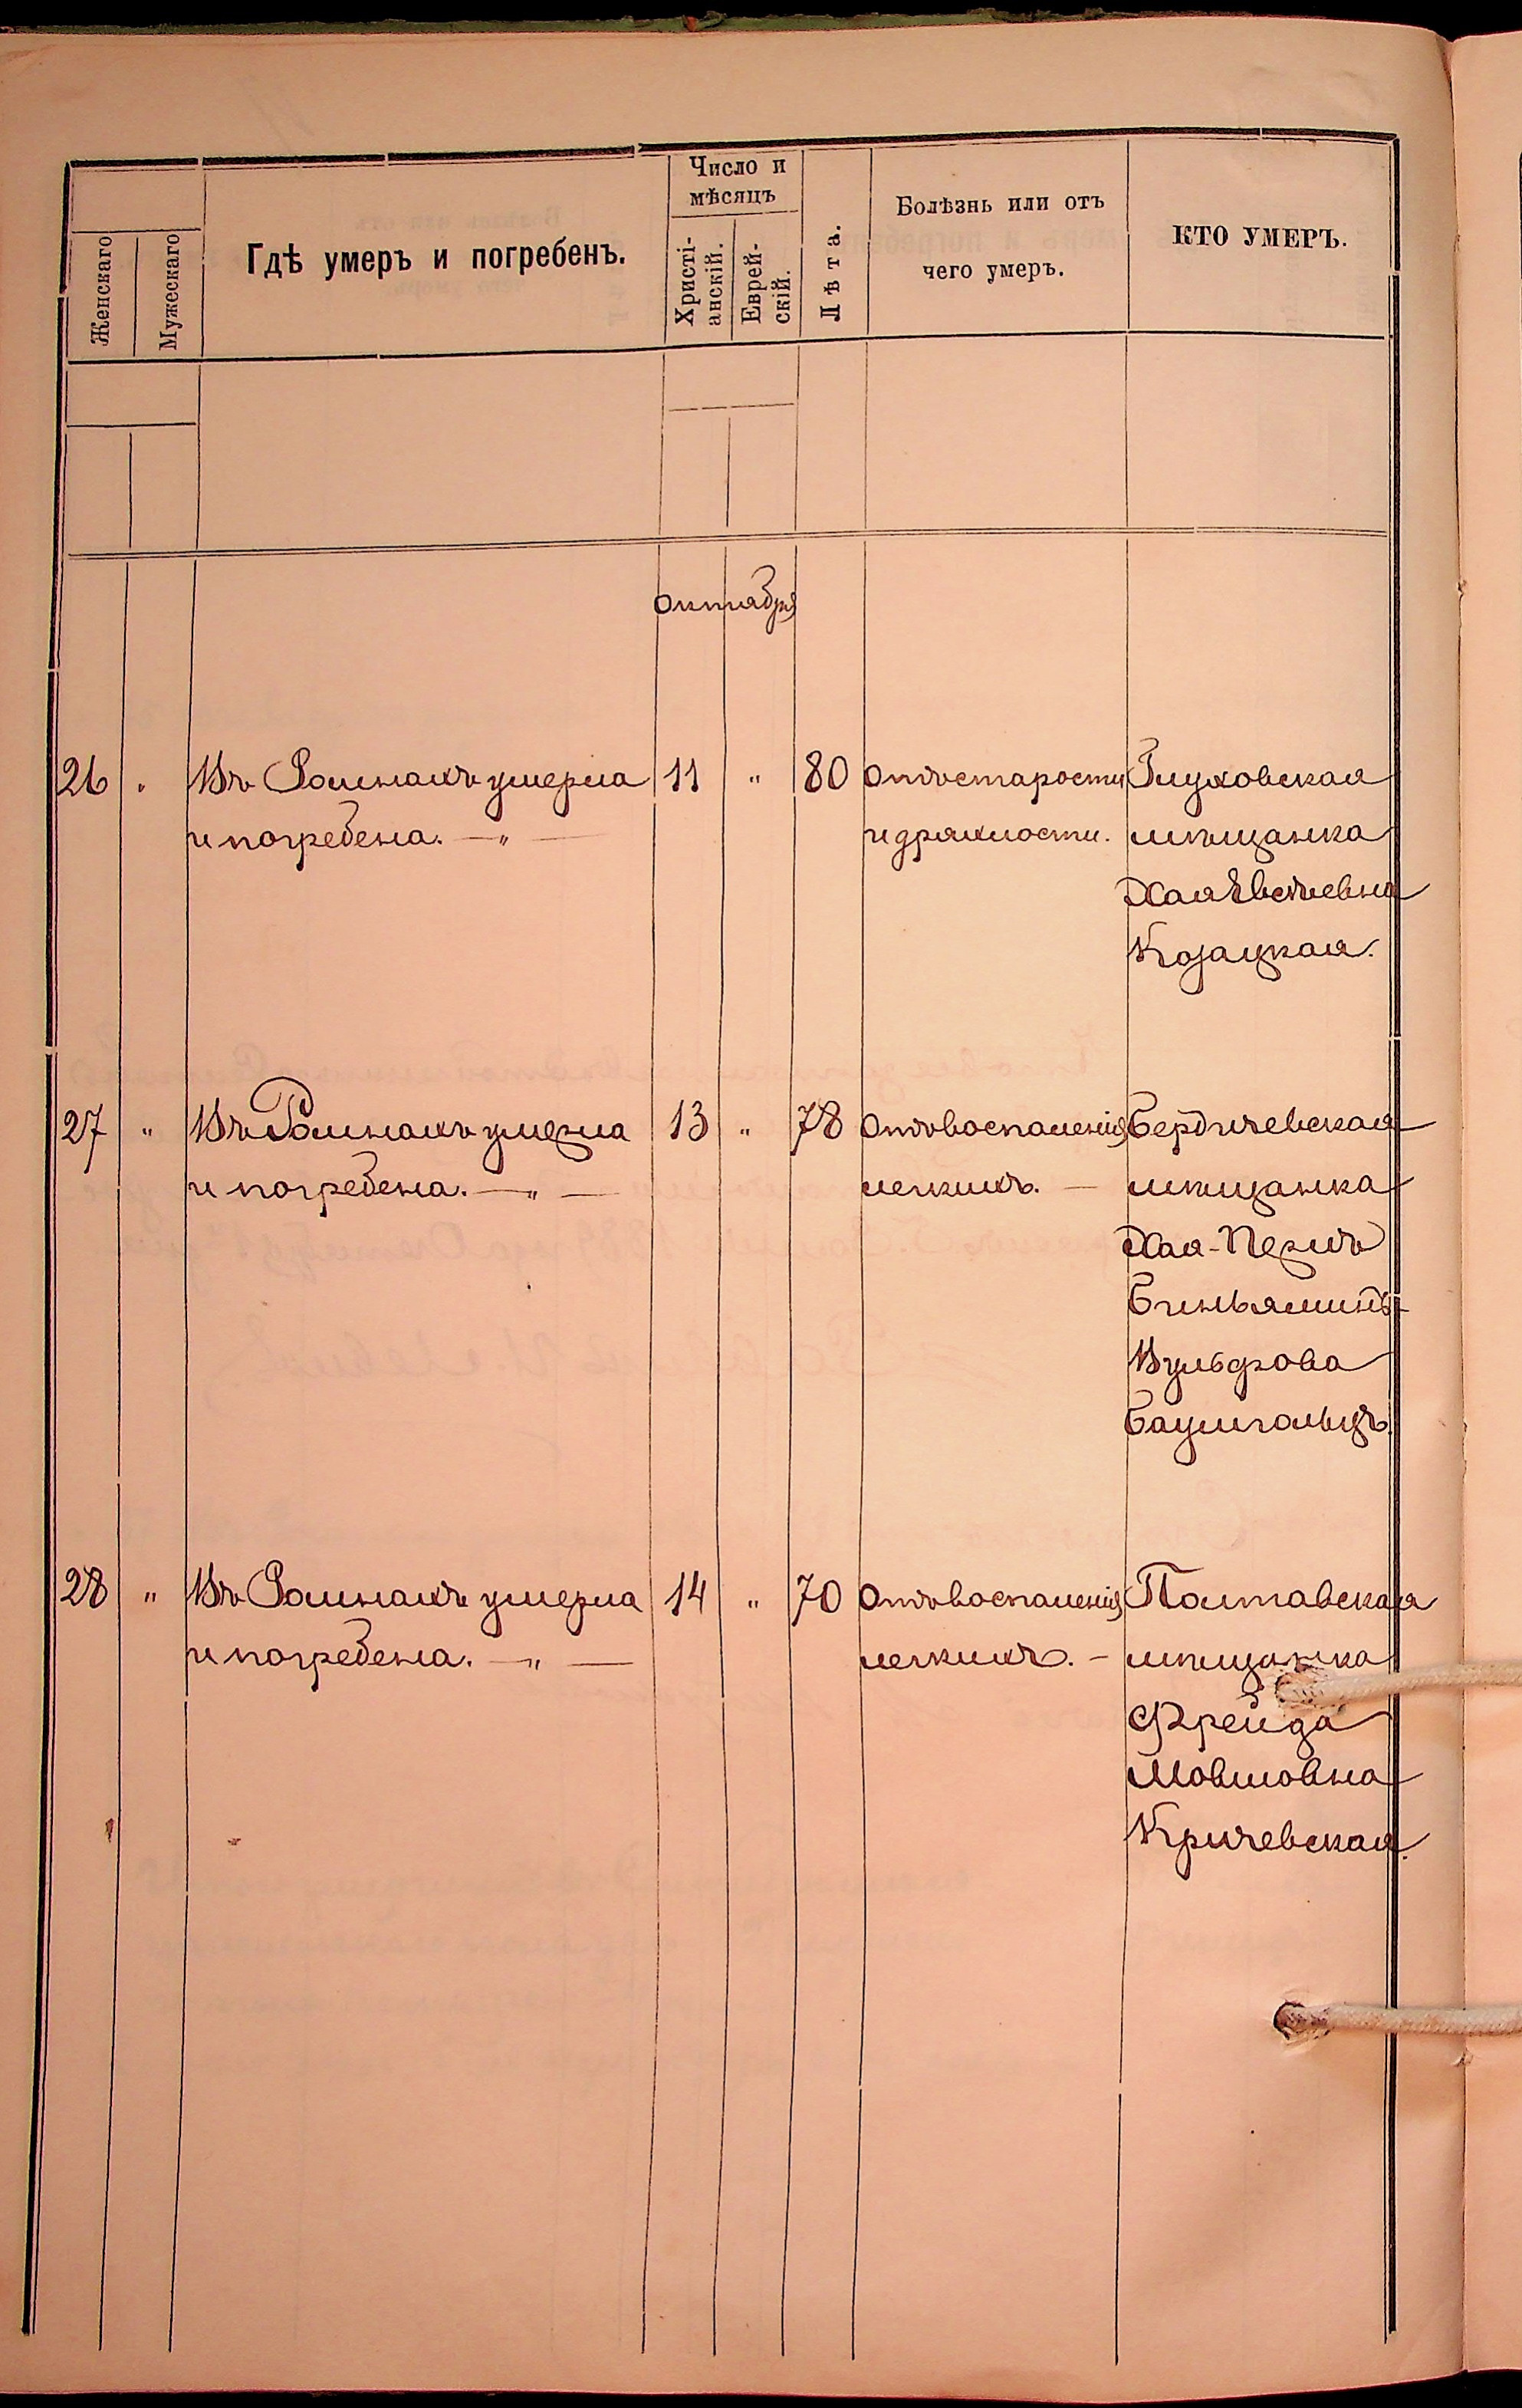 Женскаго
Мужескаго
Гдѣ умеръ и погребенъ.
Число и
мѣсяцъ
Христі-
анскій.
Еврей-
скій.
Лѣта.
Болѣзнь или отъ
чего умеръ.
КТО УМЕРЪ.
октября
26 " Въ Ромнахъ умерла 11 " 80 Отъ старости Глуховская
и погребена. — " — и дряхлости. мѣщанка
Хая Евсѣевна
Козацкая.
27 " Въ Ромнахъ умерла 13 " 78 Отъ воспаленія Бердичевская
и погребена. — " — легкихъ. — мѣщанка
Хая-Перль
Биньяминъ
Вульфова
Баумгольцъ
28 " Въ Ромнахъ умерла 14 " 70 Отъ воспаленія Полтавская
и погребена. — " — легкихъ. — мѣщанка
Фрейда
Мовшовна
Кричевская.